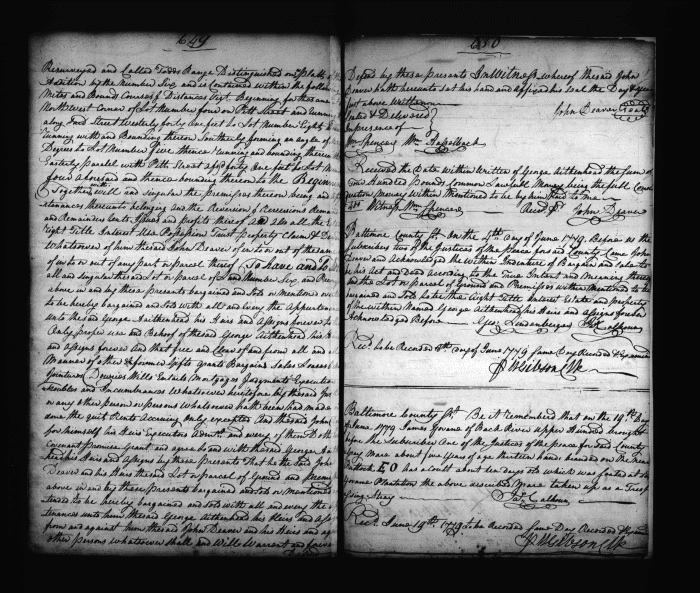 649
Resurveyed and Called Todds Range Distinguished on the platt of
Addition by the Number Six and is contained within the following
Metes and Bounds Courses & Distances Vizt. Beginning for the same
North West Corner of Lot Number four on Pitt Street and running
along Said Street Westerly forty one feet to Lot Number Eight
running with and Bounding thereon Southerly forming an angle of
Degrees to Lot Number Five thence running and bounding thereon
Easterly parallel with Pitt Street forty One feet to Lot
four aforesaid and thence bounding thereon to the Beginning
Together with all and singular the premisses thereon being and
tenances thereunto belonging and the Reversion & reversions
and Remainders Rents Issues and profits thereof and also all the
Right Title Interest Use Possession Trust Property Claim &
Whatsoever of him the said John Deaver of in to or out of the same
of in to or out of any part or parcel thereof To have and To
all and singular the said Lot or parcel of Land Number Six and
above in and by these presents bargained and sold or Mentioned
to be hereby bargained and Sold with all and every the Appurten
unto the said George Aitkenhead his Heirs and Assigns forever to
Only proper use and Behoof of the said George Aitkenhead his
and assigns forever And that free and Clear of and from all and
Manner of other & former Gifts grants Bargains Sales Leases
Jointures Dowries Wills Entails Mortgages Judgments Execution
troubles and Encumbrances Whatsoever heretofore by the said
or any other person or persons Whatsoever had been had made
done the quit Rents Accruing only excepted And the said John
for himself his Heirs Executors Adm'rs and every of them Doth
Covenant promise Grant and agree to and with the said George
head his Heirs and Assigns by these Presents That he the said John
Deaver and his Heirs the said Lot or parcel of Ground and premises
above in and by these presents bargained and sold or mentioned
tended to be hereby bargained and sold with all and every the
tenances unto him the said George Aitkenhead his Heirs and
from and against him the said John Deaver and his Heirs and
other persons whatsoever shall and Will Warrant and forever
650
Defend by these presents In Witness whereof the said John
Deaver hath hereunto set his hand and affixed his seal the Day & year
first above Written
John Deaver Seal
Sealed & Delivered
In presence of
Wm Spencer Wm Hasselback
Received the Date within Written of George Aitkenhead the sum of
Hundred Pounds Common Lawfull Money being the full Consi
deration Money within Mentioned to be by him paid to me
Witness Wm Spencer Recd. Pr John Deaver
Baltimore County Ss. On the 4th day of June 1779 Before us the
Subscribers two of the Justices of the Peace for said County Came John
Deaver and Acknowledged the within Indenture of Bargain and sale to be
his Act and Deed according to the true Intent and Meaning thereof
and the Lot or parcel of Ground and Premisses within Mentioned to be
bargained and Sold to be the Right Title Interest Estate and property
of the within Named George Aitkenhead his Heirs and assigns forever
Acknowledged Before Geo: Lindenberger Js. Calhoun
Recd. to be recorded 8th day of June 1779 Same Day Recorded & Examined
Pr Wm Gibson Clk
Baltimore County Ss. Be it remembered that on the 19th Day
of June 1779 James Govane of Back River upper Hundred brought
before the Subscriber One of the Justices of the peace for said County
Gray Mare about five Years of age thirteen hands branded on the Near
Buttock EO has a Coult about ten days old which was foaled at
Govanes Plantation the above described Mare taken up as a Tresp
assing Stray
Js. Calhoun
Recd. June 19th 1779 to be recorded Same Day Recorded & Examd.
Pr Wm Gibson Clk